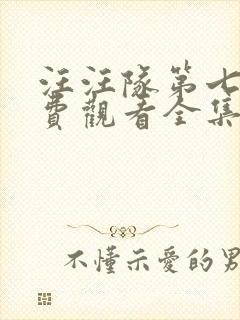 汪汪隊第七
費觀看全集
不懂示愛的男